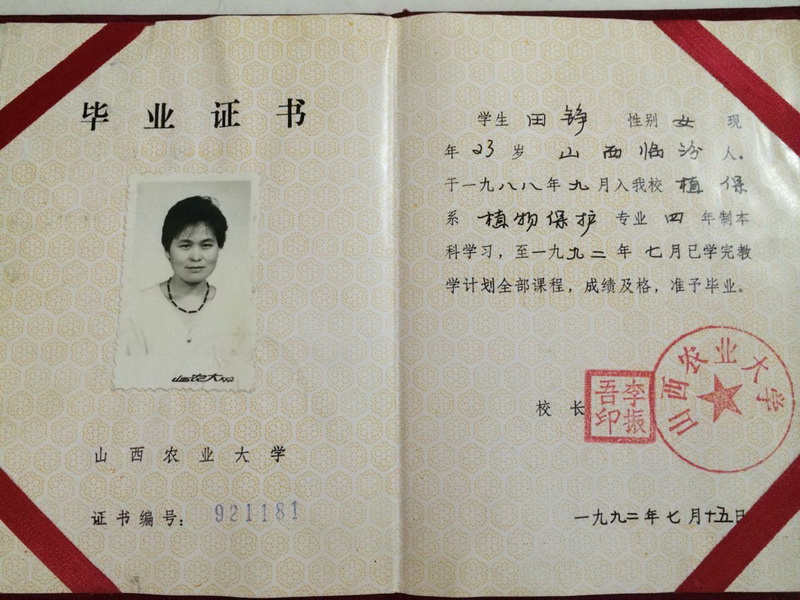 毕业证书
山农大1992
山西农业大学
证书编号：921181
学生 田铮 性别 女 现
年 23 岁 山西临汾 人。
于一九八八年九月入我校 植保
系 植物保护 专业 四 年制本
科学习，至一九九二年七月已学完教
学计划全部课程，成绩及格，准予毕业。
校长
李振吾印
山西农业大学
一九九二年七月十五日